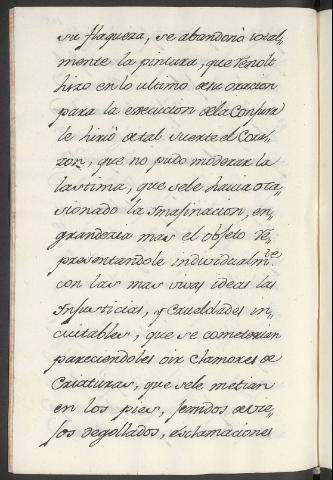 su flaqueza, se abandonó total„
mente la pintura, que Renolt
hizo en lo ultimo de su oracion
para la execucion de la Conjura
le hirió de tal suerte el Cora„
zon, que no pudo moderar la
lastima, que sele havia oca„
sionado la Imaginacion, en„
grandecia mas el objeto Re„
presentandole individualm.te
con las mas vivas ideas las
Injusticias, y Crueldades in„
evitables, que se cometerien
pareciendoles oir clamores de
Criaturas, que sele metian
en los pies, gemidos de vie„
jos degollados, esclamaciones